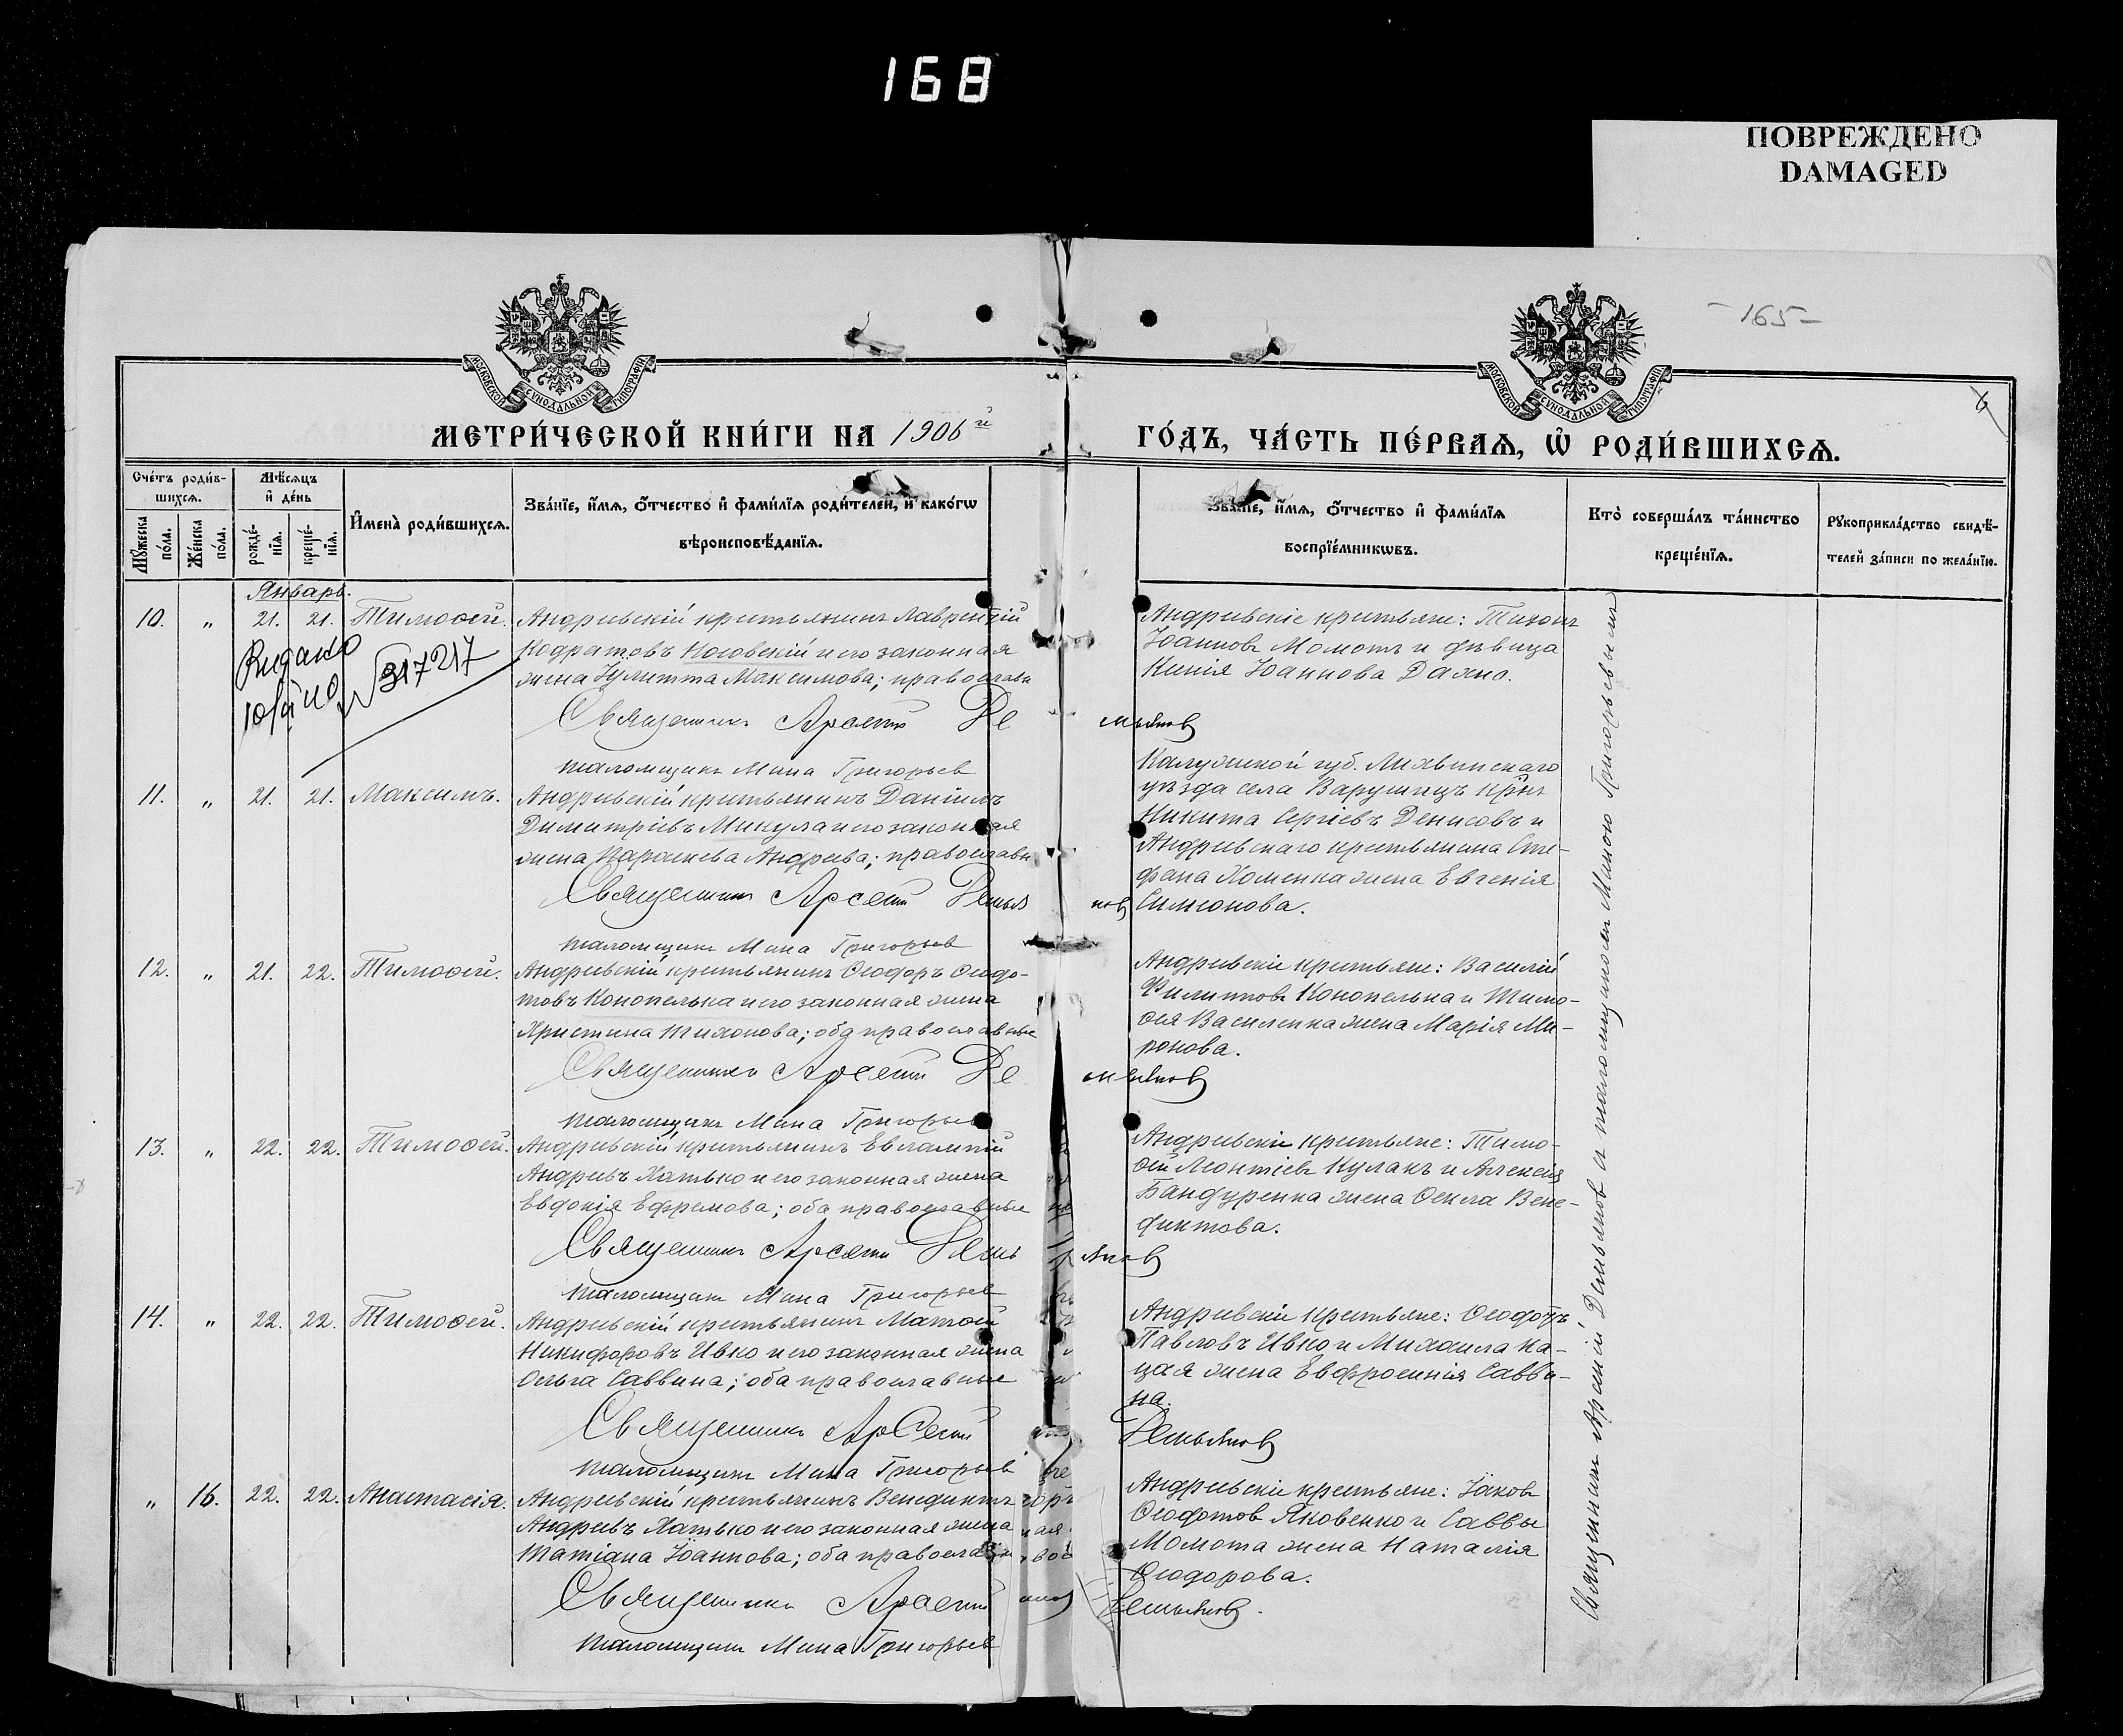 168
ПОВРЕЖДЕНО
DAMAGED
165
6
МОСКОВСКОЙ СѴНОДАЛЬНОЙ ТИПОГРАФІИ
МОСКОВСКОЙ СѴНОДАЛЬНОЙ ТИПОГРАФІИ
МЕТРИ́ЧЕСКОЙ КНИ́ГИ НА 1906й
ГО́ДЪ, ЧА́СТЬ ПЕ́РВАѦ, Ѡ҆ РОДИ́ВШИХСѦ.
Сче́тъ роди́в-
шихсѧ.
Мꙋ́жеска по́ла.
Же́нска по́ла.
Мѣ́сѧцъ
и҆ де́нь
рожде́-
нїѧ.
креще́-
нїѧ.
И҆мена̀ роди́вшихсѧ.
Зва́нїе, и҆́мѧ, ѻ҆́тчество и҆ фами́лїѧ роди́телей, и҆ како́гѡ
вѣроисповѣ́данїѧ.
Зва́нїе, и҆́мѧ, ѻ҆́тчество и҆ фами́лїѧ
воспрїе́мникѡвъ.
Кто̀ соверша́лъ та́инство
креще́нїѧ.
Рꙋкоприкла́дство свидѣ́-
телей за́писи по жела́нїю.
Январь.
10. „ 21. 21. Тимоѳей.
Андреевскій крестьянинъ Лаврентій
Кодратовъ Носовскій и его законная
жена Іулитта Максимова; православн
Священникъ Арсеній Демьянов
Псаломщикъ Мина Григорьев
Андреевскіе крестьяне: Тихонъ
Іоанновъ Момотъ и девица
Ксенія Іоаннова Дахно.
Видано
317217
11. „ 21. 21. Максимъ.
Андреевскій крестьянинъ Даніилъ
Димитріевъ Микула и его законная
жена Параскева Андреева; православн
Священникъ Арсеній Демьянов
Псаломщикъ Мина Григорьев
Калужской губ. Лихвинскаго
уѣзда села Варушицъ крнъ
Никита Сергіевъ Денисовъ и
Андреевскаго крестьянина Сте-
фана Хоменка жена Евгенія
Симеонова.
12. „ 21. 22. Тимоѳей.
Андреевскій крестьянинъ Ѳеодоръ Ѳеодо-
товъ Конопелька и его законная жена
Христина Тихонова; оба православные
Священникъ Арсеній Демьянов
Псаломщикъ Мина Григорьев
Андреевскіе крестьяне: Василій
Филипповъ Конопелька и Тимо-
ѳея Василенка жена Марія Ми-
ронова.
13. „ 22. 22. Тимоѳей.
Андреевскій крестьянинъ Евлампій
Андреевъ Хатько и его законная жена
Евдокія Ефремова; оба православные
Священникъ Арсеній Демьянов
Псаломщикъ Мина Григорьев
Андреевскіе крестьяне: Тимо-
ѳей Леонтіевъ Кулакъ и Алексея
Бандуренка жена Ѳекла Вене-
диктова.
14. „ 22. 22. Тимоѳей.
Андреевскій крестьянинъ Матѳей
Никифоровъ Ивко и его законная жена
Ольга Саввина; оба православные
Священникъ Арсеній Демьянов
Псаломщикъ Мина Григорьев
Андреевскіе крестьяне: Ѳеодотъ
Павловъ Ивко и Михаила Ка-
цая жена Евфросинія Савви-
на.
„ 16. 22. 22. Анастасія.
Андреевскій крестьянинъ Венедиктъ
Андреевъ Хатько и его законная жена
Татіана Іоаннова; оба православн
Священникъ Арсеній Демьянов.
Псаломщикъ Мина Григорьев
Андреевскіе крестьяне: Іаковъ
Ѳеодотовъ Яковенко и Саввы
Момота жена Наталія
Ѳеодорова.
Священникъ Арсеній Демьянов съ псаломщикомъ Миною Григорьевымъ